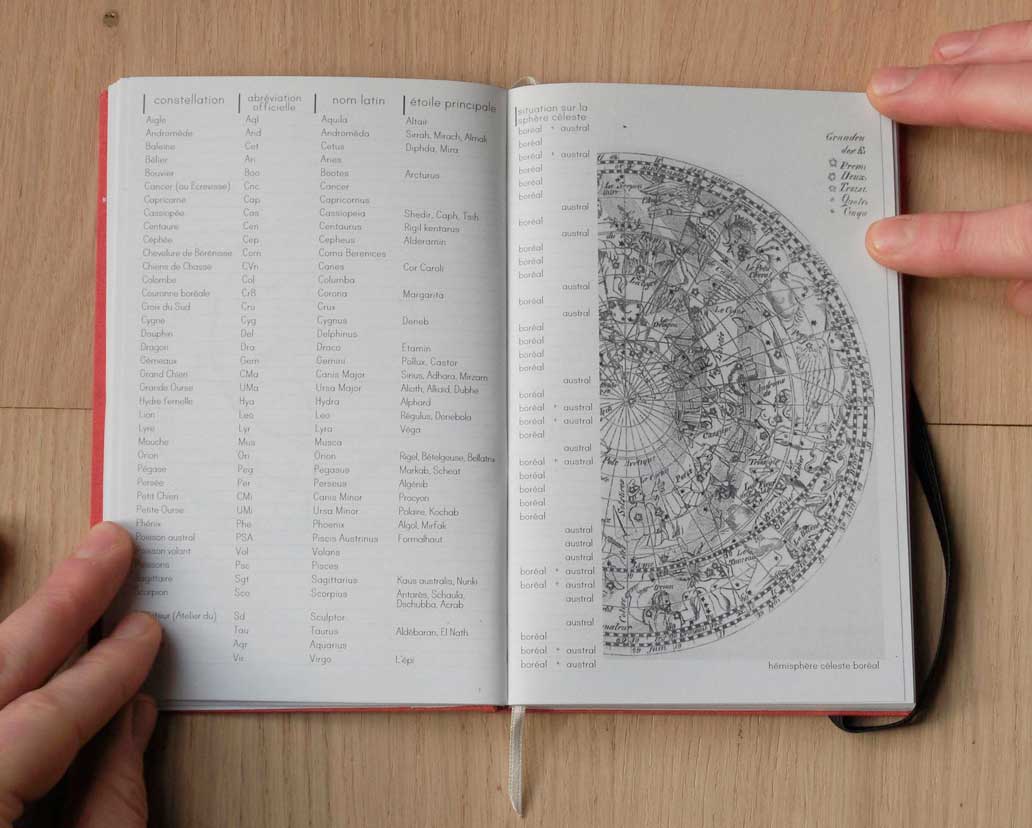 constellation abréviation officielle nom latin étoile principale
Aigle Aql Aquila Altaïr
Andromède And Andromèda Sirrah, Mirach, Almak
Baleine Cet Cetus Diphda, Mira
Bélier Ari Aries
Bouvier Boo Bootes Arcturus
Cancer (ou Ecrevisse) Cnc Cancer
Capricorne Cap Capricornius
Cassiopée Cas Cassiopeia Shedir, Caph, Tsih
Centaure Cen Centaurus Rigil kentarus
Céphée Cep Cepheus Alderamin
Chevelure de Bérénisse Com Coma Berenices
Chiens de Chasse CVn Canes Cor Caroli
Colombe Col Columba
Couronne boréale CrB Corona Margarita
Croix du Sud Cru Crux
Cygne Cyg Cygnus Deneb
Dauphin Del Delphinus
Dragon Dra Draco Etamin
Gémeaux Gem Gemini Pollux, Castor
Grand Chien CMa Canis Major Sirius, Adhara, Mirzam
Grande Ourse UMa Ursa Major Alioth, Alkaid, Dubhe
Hydre femelle Hya Hydra Alphard
Lion Leo Leo Régulus, Denebola
Lyre Lyr Lyra Véga
Mouche Mus Musca
Orion Ori Orion Rigel, Bételgeuse, Bellatrix
Pégase Peg Pegasus Markab, Scheat
Persée Per Perseus Algénib
Petit Chien CMi Canis Minor Procyon
Petite Ourse UMi Ursa Minor Polaire, Kochab
Phénix Phe Phoenix Algol, Mirfak
Poisson austral PSA Piscis Austrinus Formalhaut
volant Vol Volans
Psc Pisces
Sgt Sagittarius Kaus australis, Nunki
Sco Scorpius Antarès, Schaula,
Dschubba, Acrab
(Atelier du) Sd Sculptor
Tau Taurus Aldébaran, El Nath
Aqr Aquarius
Vir Virgo L'épi
situation sur la
sphère céleste
boréal + austral
boréal
boréal + austral
boréal
boréal
boréal
austral
boréal
austral
boréal
boréal
boréal
austral
boréal
austral
boréal
boréal
boréal
boréal
austral
boréal
boréal + austral
boréal + austral
boréal
austral
boréal + austral
boréal
boréal
boréal
boréal
austral
austral
austral
boréal + austral
boréal + austral
austral
austral
boréal
boréal + austral
boréal + austral
Grandeu
des E
Prem
Deux
Quatr
hémisphère céleste boréal